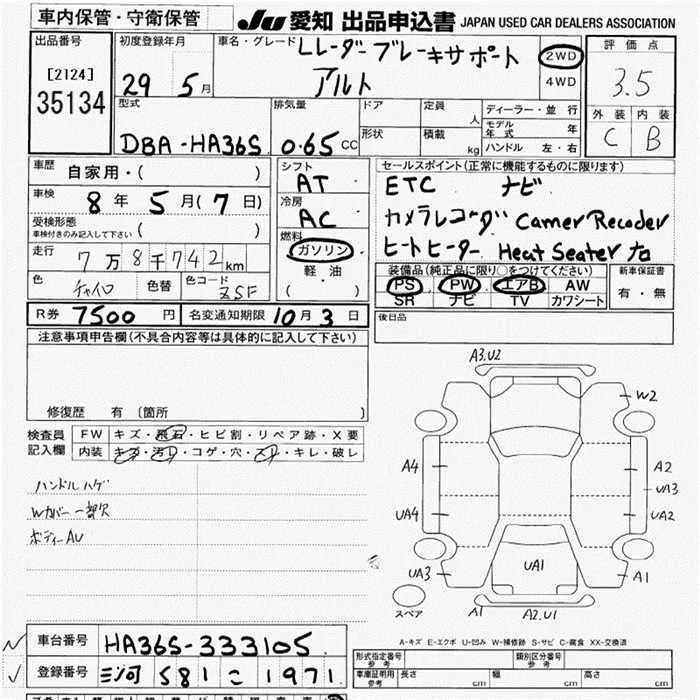 車内保管・守衛保管 JU 愛知 出品申込書 JAPAN USED CAR DEALERS ASSOCIATION
出品番号
[2124]
35134
初度登録年月
29 5 月
車名・グレード
Lレーダーブレーキサポート
アルト
2WD
4WD
評価点
3.5
外装 内装
C B
型式
DBA-HA36S
排気量
0.65 CC
ドア
形状
定員
人
積載
kg
ディーラー・並行
モデル年式 年
ハンドル 左・右
車歴
自家用・( )
車検
8 年 5 月 (7 日)
受検形態
車検付きのみ記入して下さい ( )
走行
7万8千742 km
色
チャイロ
色替
色コード
ZSF
シフト
AT
冷房
AC
燃料
ガソリン
軽油
( )
セールスポイント(正常に機能するものに限ります)
ETC ナビ
カメラレコーダ Camer Recoder
ヒートヒーター Heat Seater 右
装備品(純正品に限り○をつけてください)
PS PW エアB AW
SR ナビ TV カワシート
新車保証書
有・無
R券 7500 円
名変通知期限 10 月 3 日
後日品
注意事項申告欄(不具合内容等は具体的に記入して下さい)
修復歴 有 〔箇所 〕
検査員
記入欄
FW キズ・飛石・ヒビ割・リペア跡・X要
内装 キズ・汚レ・コゲ・穴・スレ・キレ・破レ
ハンドルハゲ
Wカバー一部欠
ボディーAU
A3.U2
W2
A4
A2
UA3
UA4
UA2
UA1
UA3
A1
スペア
A1
A2.U1
A-キズ E-エクボ U-凹み W-補修跡 S-サビ C-腐食 XX-交換済
車台番号 HA36S-333105
登録番号 三河 581 こ 1971
形式指定番号
参考
類別区分番号
参考
車庫証明用
参考
長さ cm
幅 cm
高さ cm